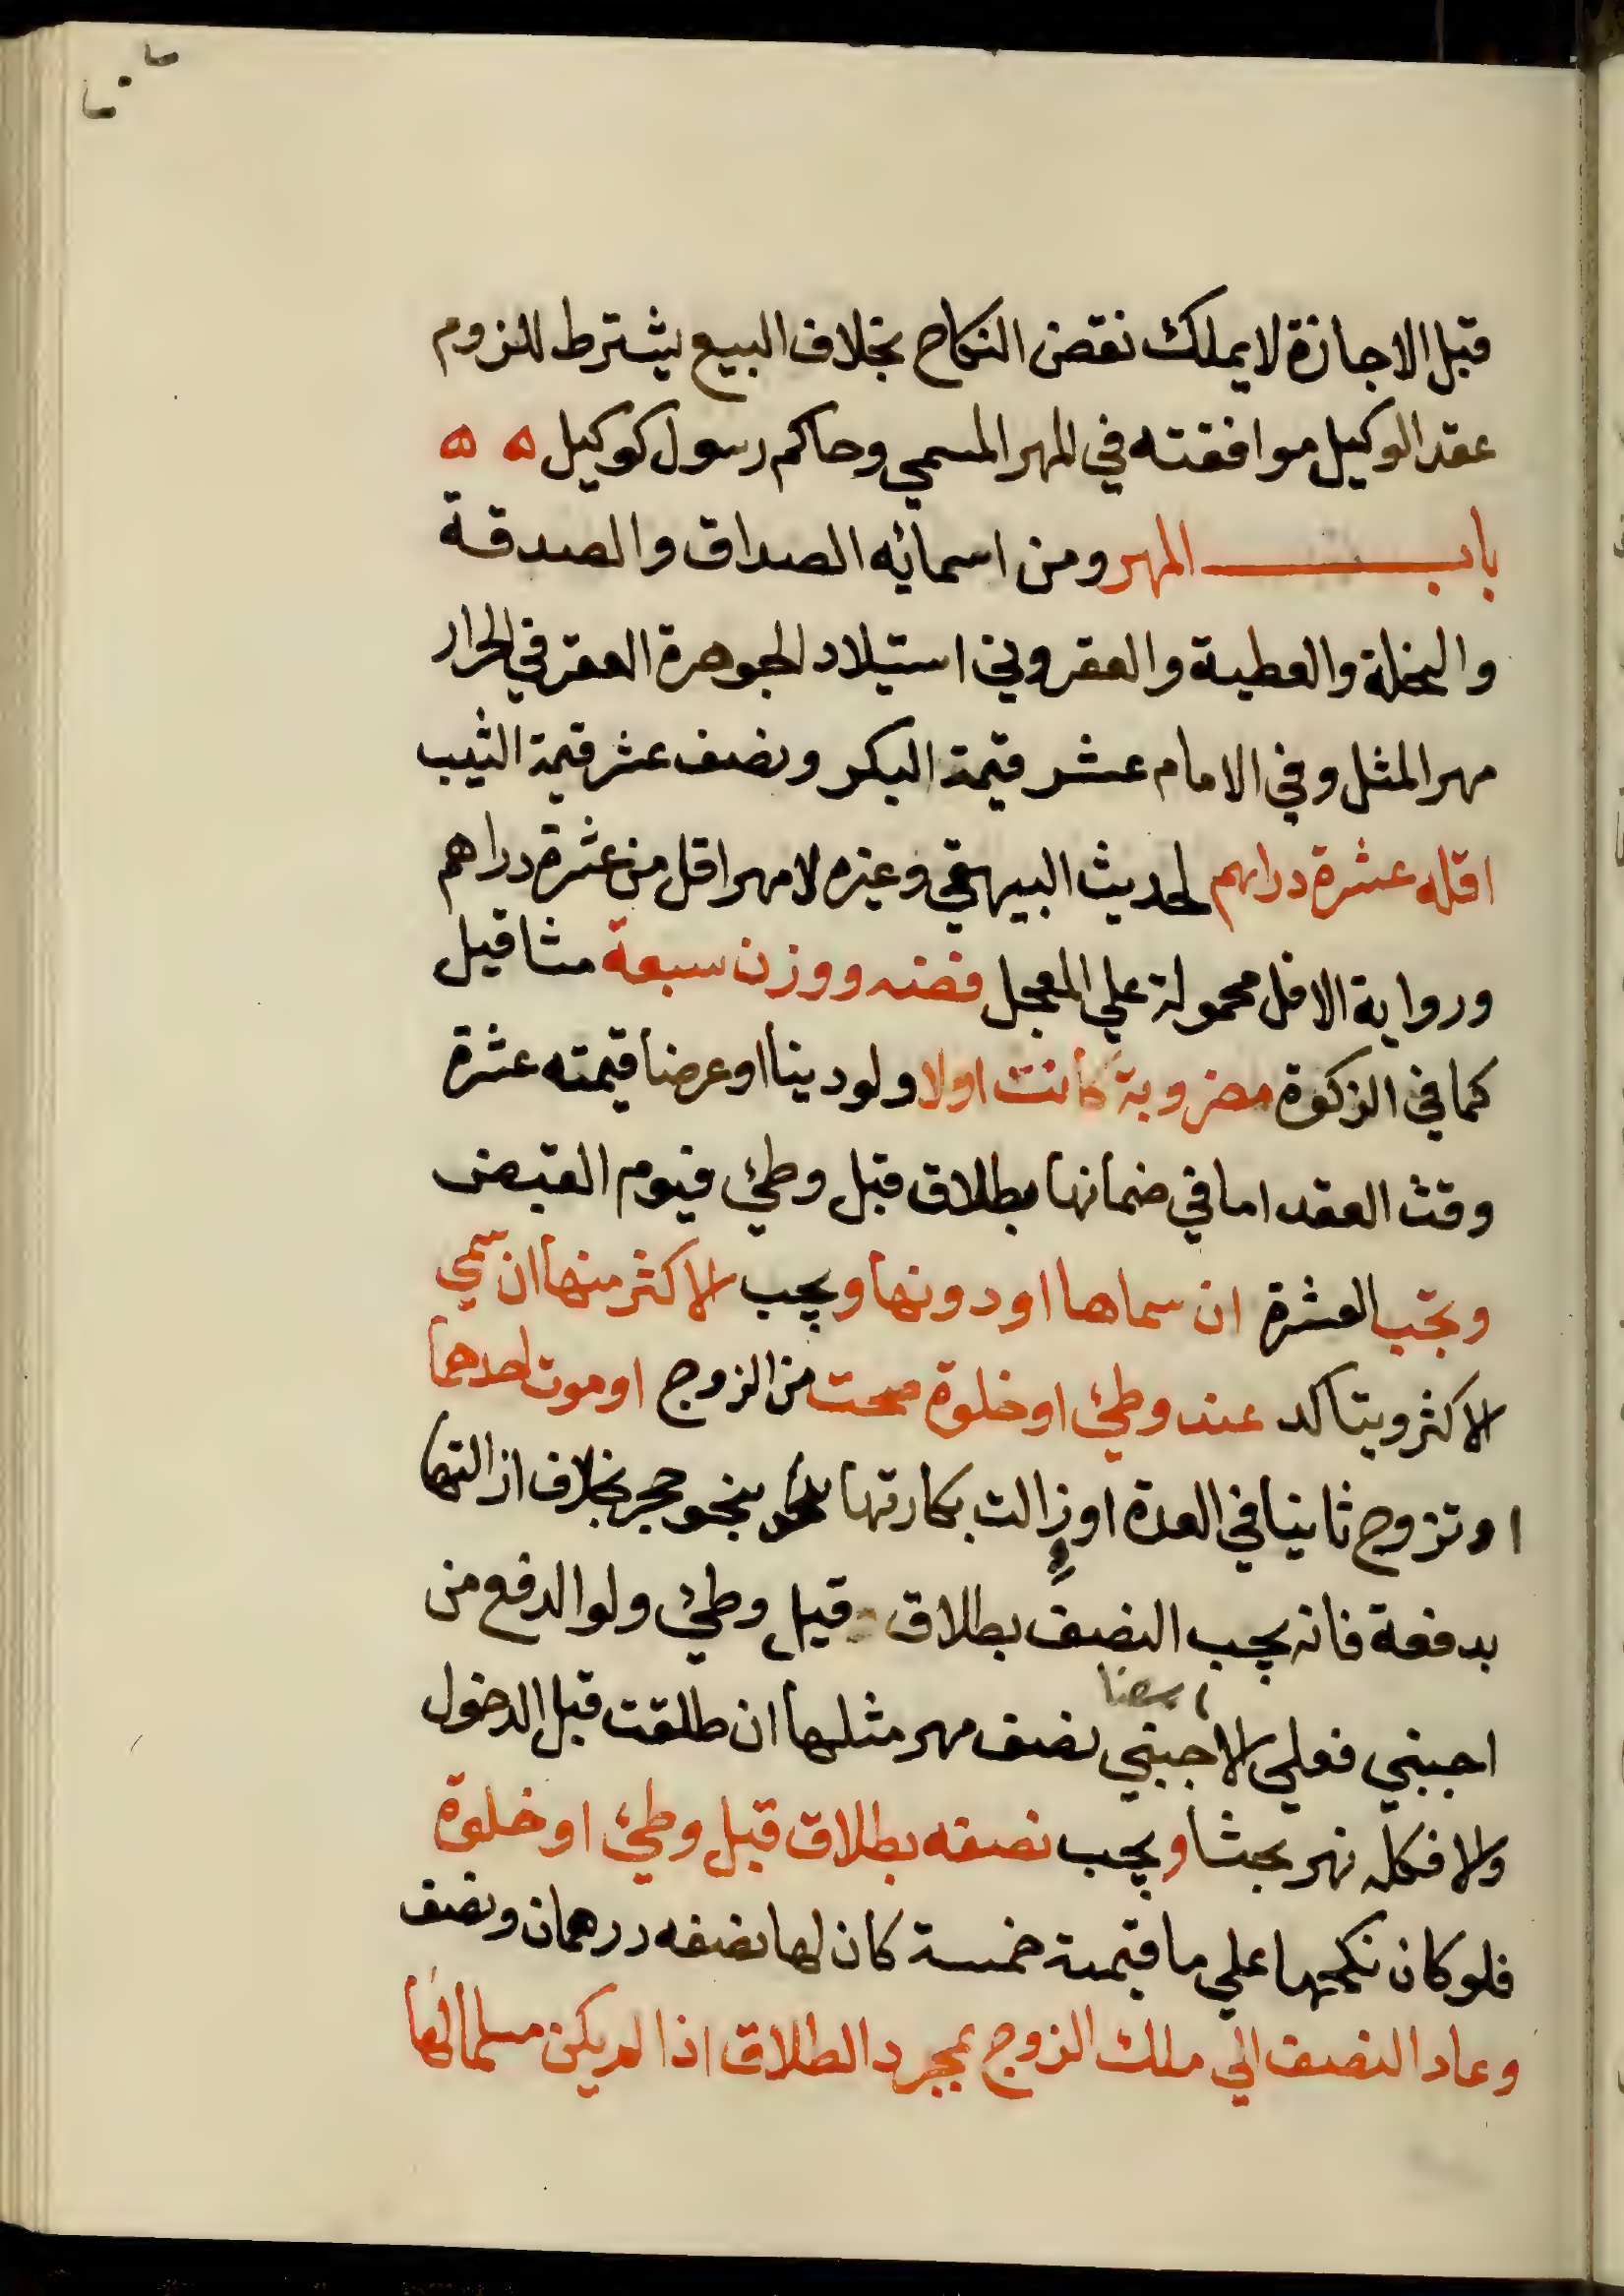 قبل الاجازة لا يملك نقض النكاح بخلاف البيع يشترط للزوم
عقد الوكيل موافقته في المهر المسمي وحاكم رسول كوكيل ه ه
باب المهر ومن اسمائه الصداق والصدقة
والنحلة والعطية والعقر وفي استيلاد الجوهرة العقر في الحرار
مهر المثل وفي الامام عشر قيمة البكر ونصف عشر قيمة الثيب
اقله عشرة دراهم لحديث البيهقي وغيره لا مهر اقل من عشرة دراهم
ورواية الاقل محمولة علي المعجل فضه ووزن سبعة مثاقيل
كما في الزكوة مضروبة كانت اولا ولو دينا او عرضا قيمته عشرة
وقت العقد اما في ضمانها بطلاق قبل وطئ فيوم القبض
وتجب العشرة ان سماها او دونها ويجب الاكثر منها ان سمي
الاكثر ويتاكد عند وطئ او خلوة صحت من الزوج او موت احدهما
او تزوج ثانيا في العدة او زالت بكارتها بنحو حجر بخلاف ازالتها
بدفعة فانه يجب النصف بطلاق قبل وطئ ولو الدفع من
اجنبي فعلي الاجنبي ايضا نصف مهر مثلها ان طلقت قبل الدخول
والا فكله نهر بحثا ويجب نصفه بطلاق قبل وطئ او خلوة
فلو كان نكحها علي ما قيمته خمسة كان لها نصفه درهمان ونصف
وعاد النصف الي ملك الزوج بمجرد الطلاق اذا لم يكن مسلما لها